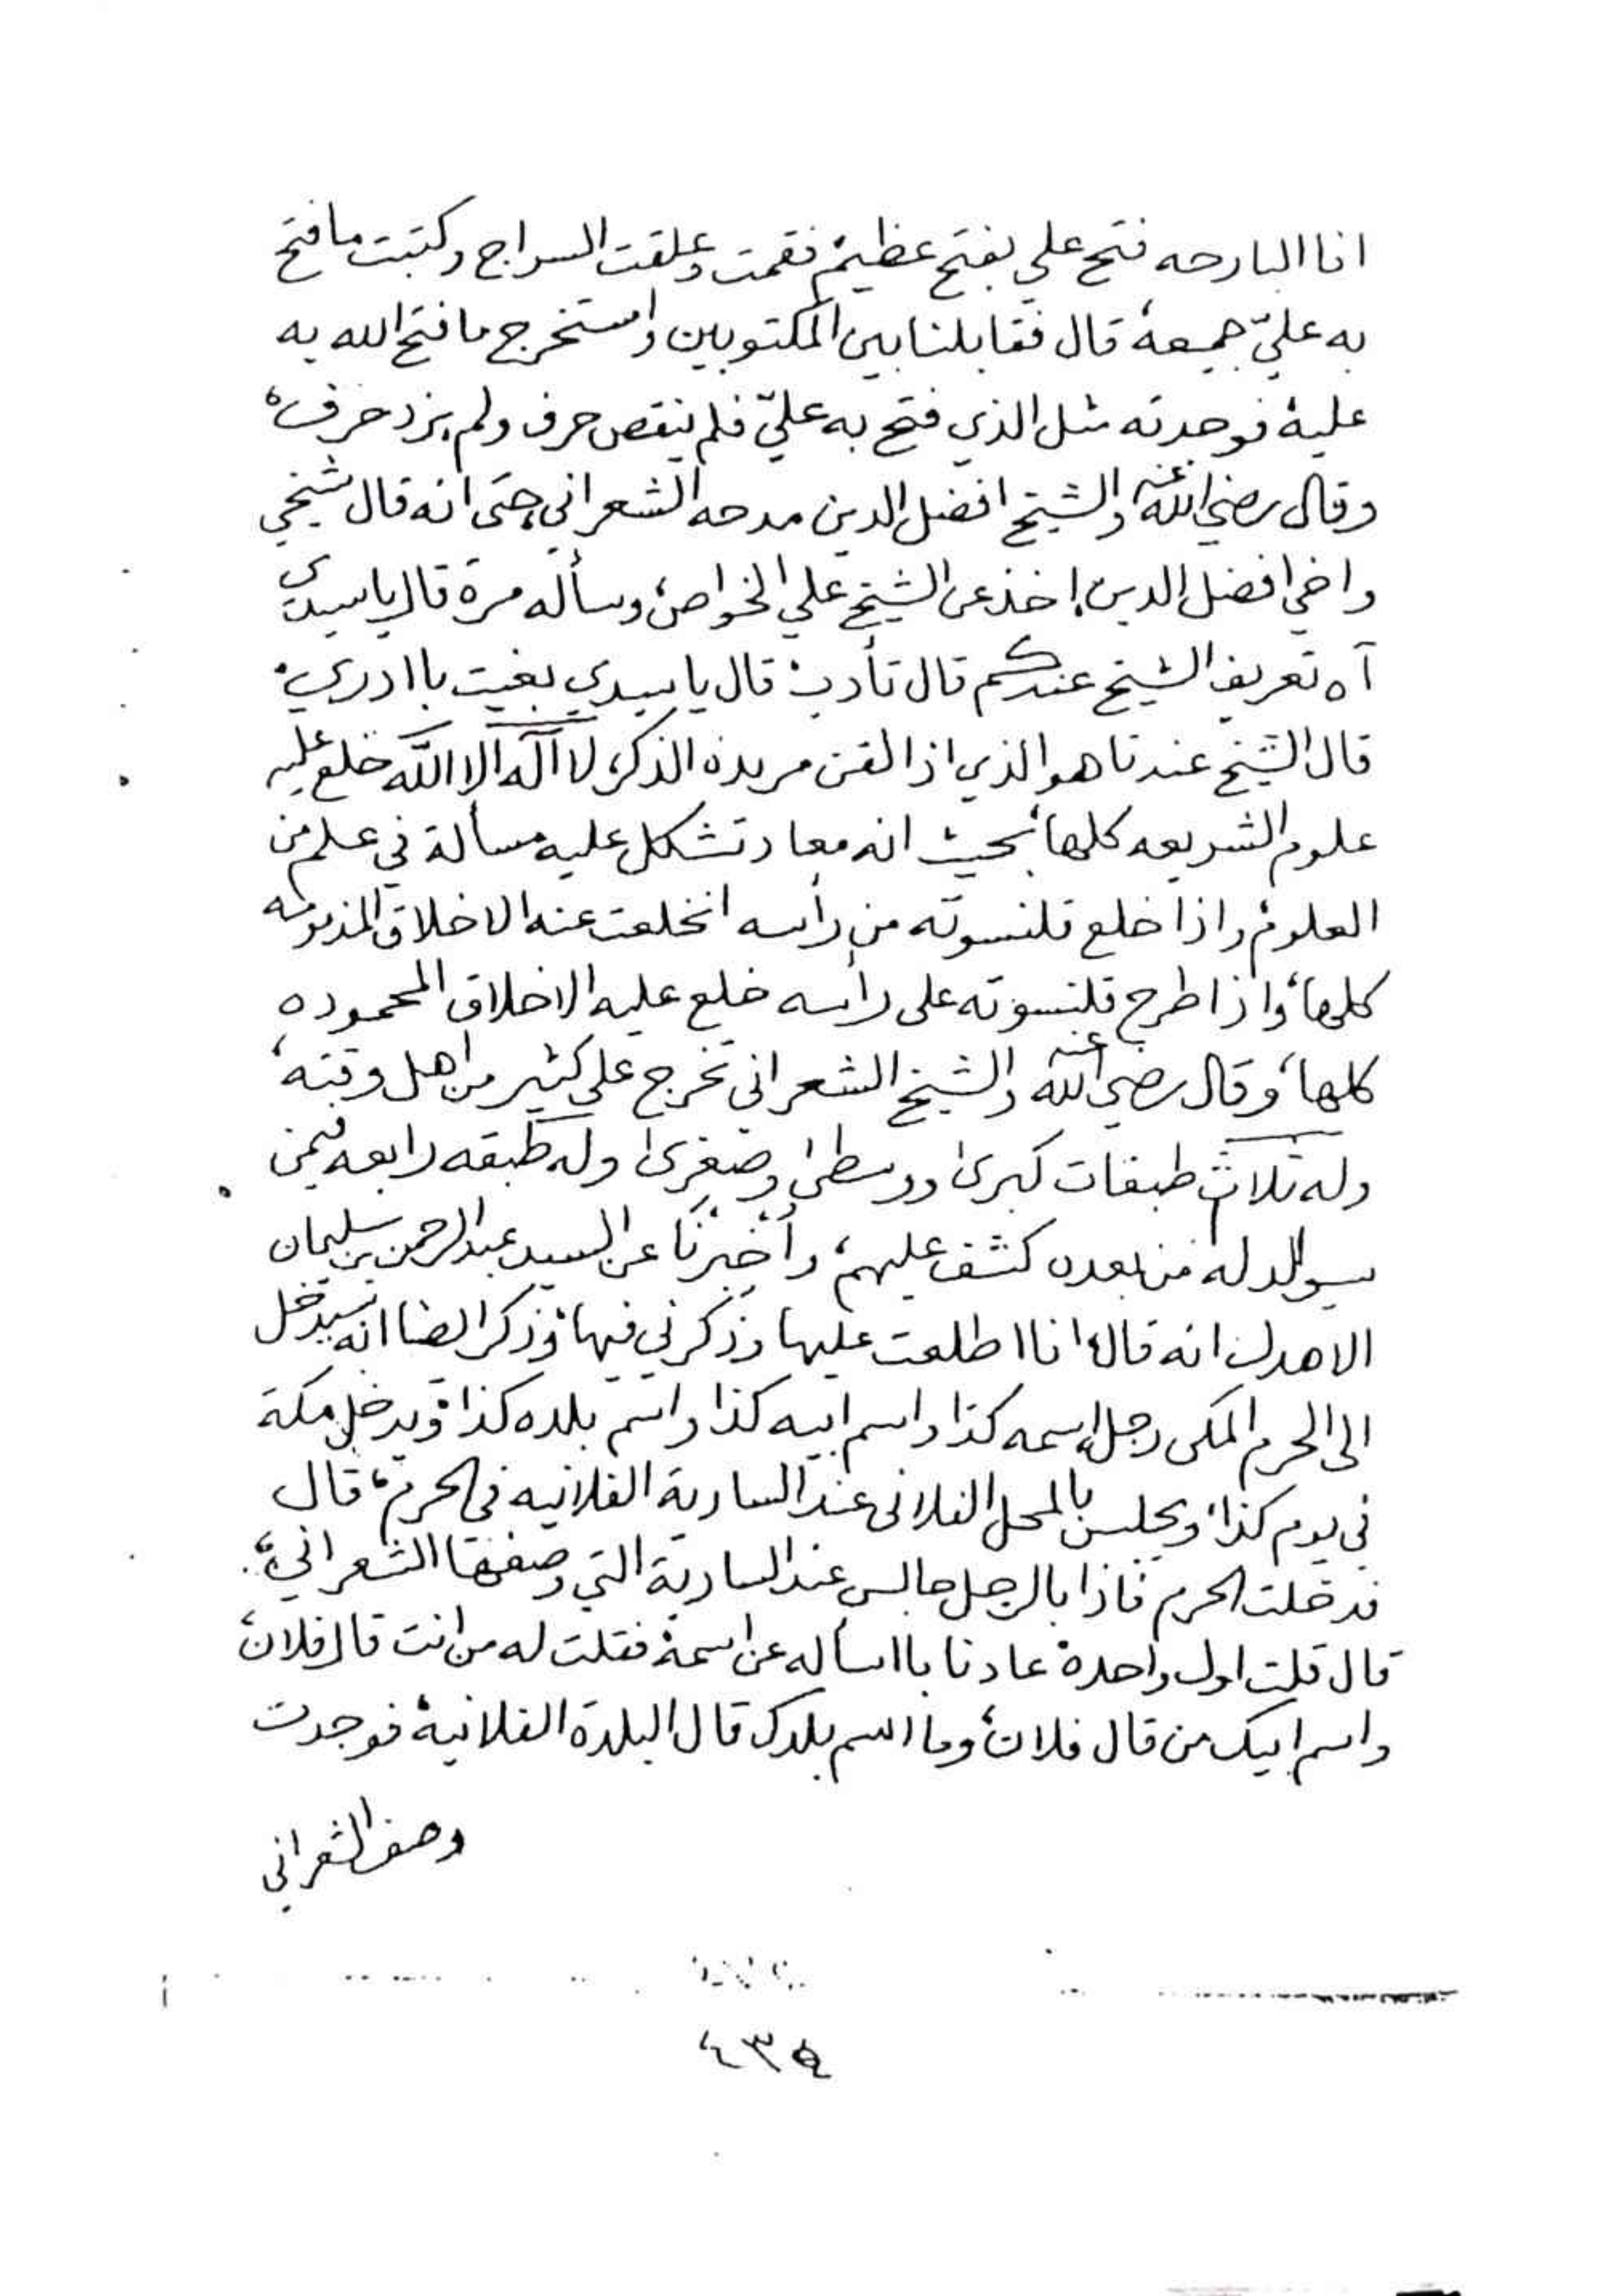 انا البارحه فتح علي بفتح عظيم، فقمت وعلقت السراج وكتبت ما فتح
به عليّ جميعه، قال فقابلنا بين المكتوبين واستخرج ما فتح الله به
عليه، فوجدته مثل الذي فتح به عليّ فلم ينقص حرف ولم يزد حرف،
وقال رضي الله عنه والشيخ افضل الدين مدحه الشعراني، حتى انه قال شيخي
واخي افضل الدين، اخذ عن الشيخ علي الخواص، وسأله مرة قال يا سيدي
آه تعريف الشيخ عندكم قال تأدب، قال يا سيدي بغيت باادري،
قال الشيخ عندنا هو الذي اذا لقن مريده الذكر، لا اله الا الله خلع عليه
علوم الشريعه كلها، بحيث انه معاد تشكل عليه مسألة في علم من
العلوم، واذا خلع قلنسوته من رأسه انخلعت عنه الاخلاق المذمومه
كلها، واذا طرح قلنسوته على رأسه خلع عليه الاخلاق المحموده
كلها، وقال رضي الله عنه والشيخ الشعراني تخرج على كثير من اهل وقته،
وله ثلاث طبقات كبرى ووسطى وصغرى وله طبقه رابعه فيمن
سيولد له من بعده كشف عليهم، وأخبرنا عن السيد عبد الرحمن بن سليمان
الاهدل انه قال، انا اطلعت عليها وذكرني فيها، وذكر ايضا انه سيدخل
الى الحرم المكي رجل اسمه كذا واسم ابيه كذا واسم بلده كذا، ويدخل مكة
في يوم كذا، ويجلس بالمحل الفلاني عند السارية الفلانيه في الحرم، قال
فدخلت الحرم فاذا بالرجل جالس عند السارية التي وصفها الشعراني،
قال قلت اول واحدة عادنا بااسأله عن اسمه، فقلت له من انت قال فلان،
واسم ابيك من قال فلان، وما اسم بلدك قال البلدة الفلانية، فوجدت
وصف الشعراني
٤٣٩